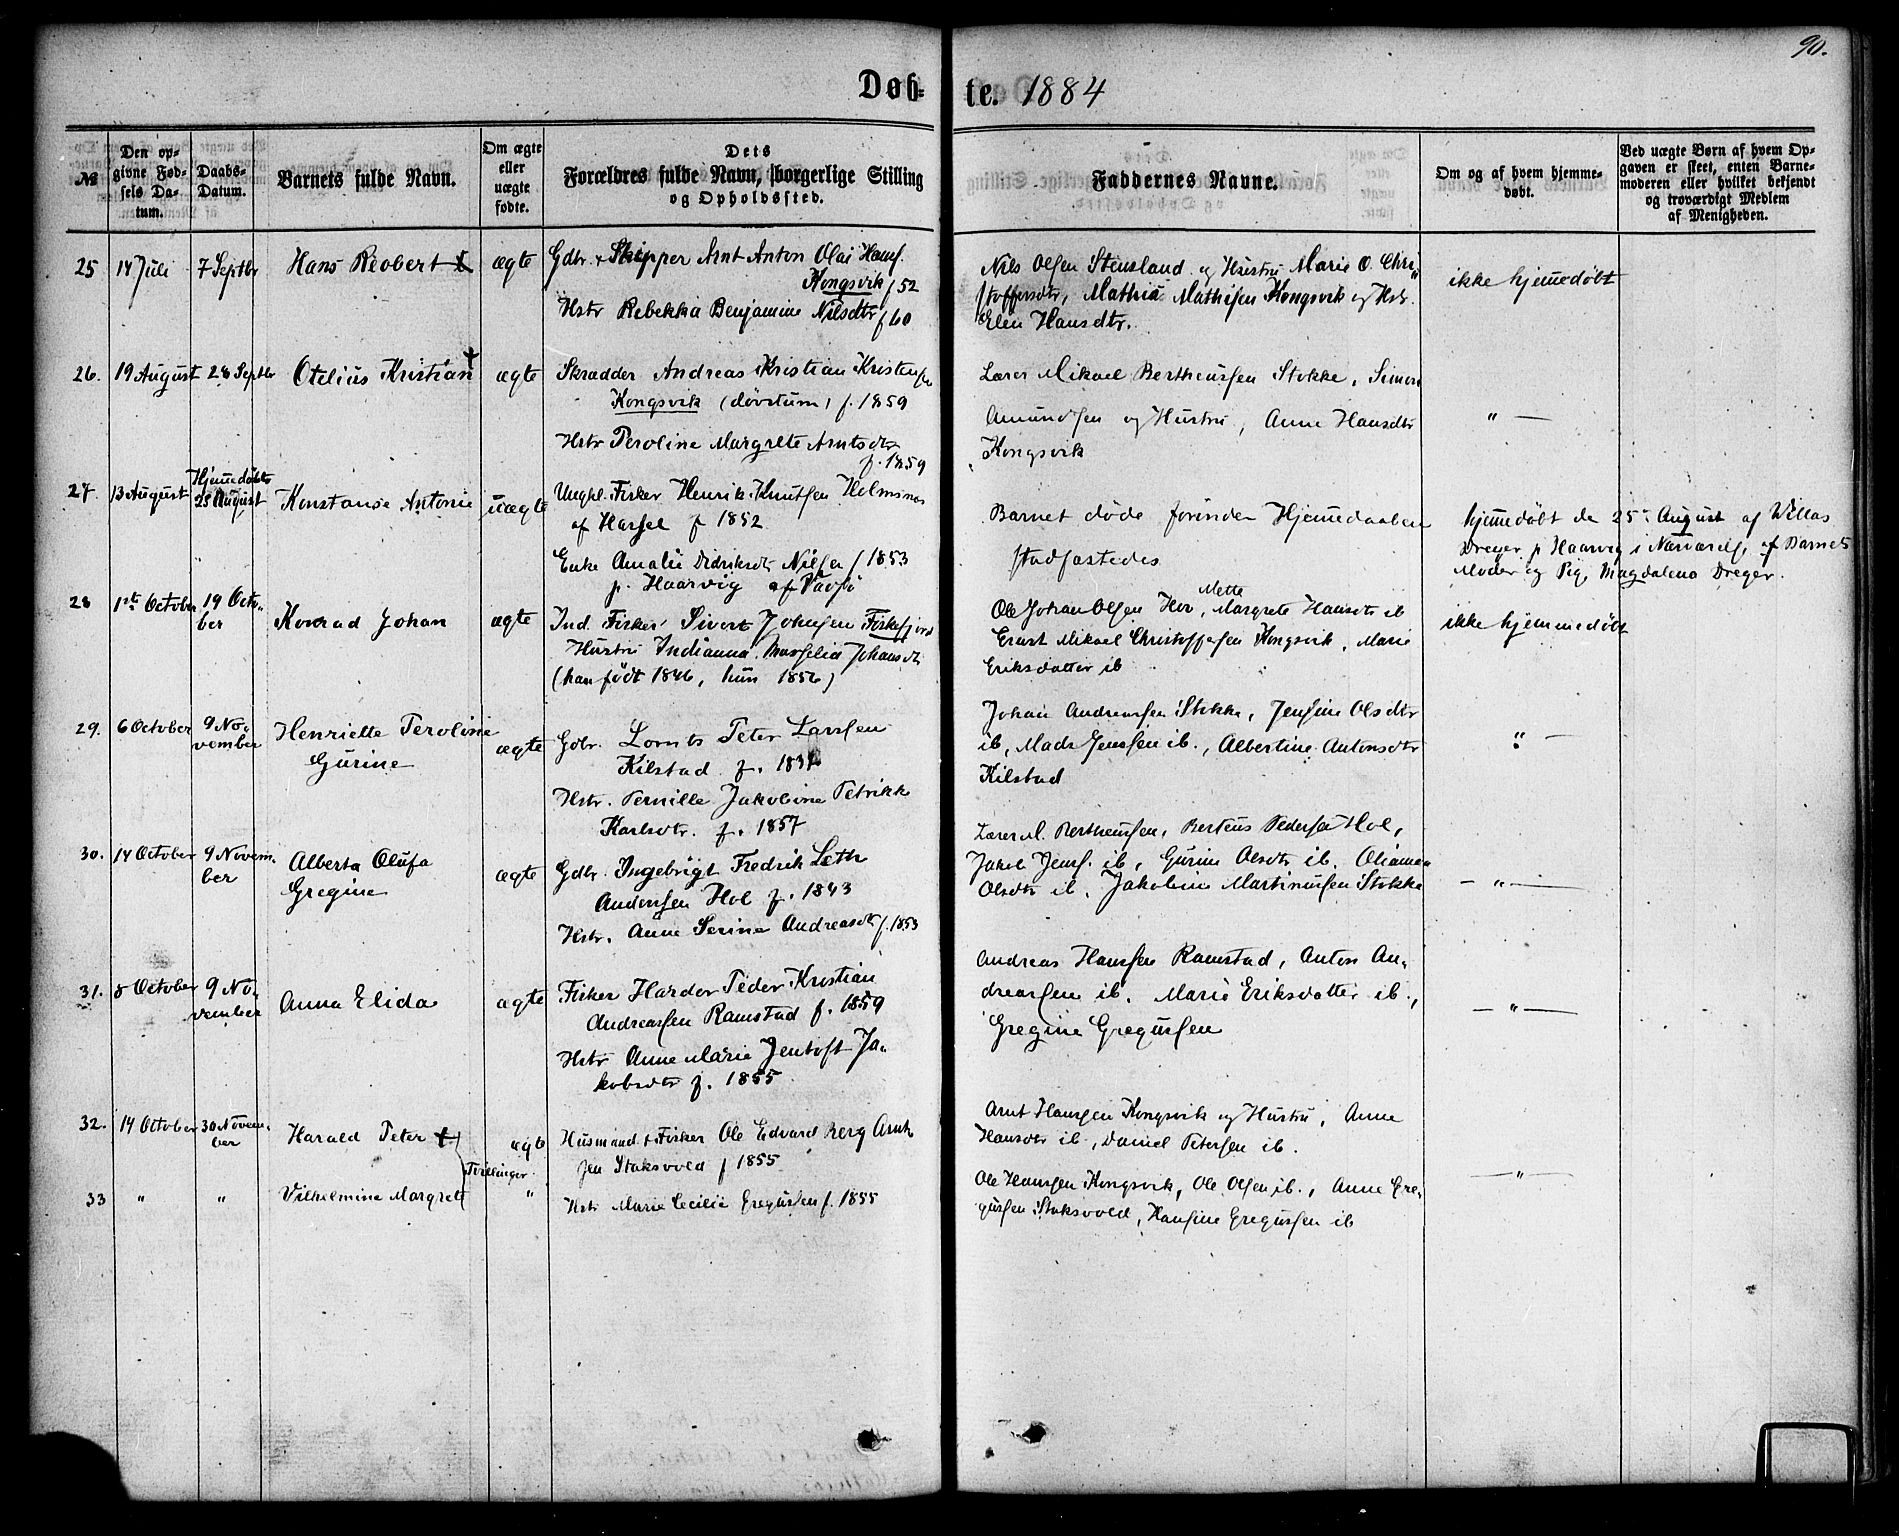 90.
Døb-
te. 1884
№
Den op-
givne Fød-
sels Da-
tum.
Daabs-
Datum.
Barnets fulde Navn.
Om ægte
eller
uægte
fødte.
Dets
Forældres fulde Navn, borgerlige Stilling
og Opholdssted.
Faddernes Navne.
Om og af hvem hjemme-
døbt.
Ved uægte Børn af hvem Op-
gaven er skeet, enten Barne-
moderen eller hvilket bekjendt
og troværdigt Medlem
af Menigheden.
25 14 Juli 7 Septbr Hans Reobert ægte Gdbr. + Skipper Arnt Anton Olai Hansf.
Kongsvik f 52
Hstr Rebekka Benjamine Nilsdtr f 60
Nils Olsen Stensland og Hustru Marie O. Chri
stoffersdtr, Mathis Mathisen Kongsvik og Hstr.
Elen Hansdtr.
ikke hjemmedøbt
26. 19 August 28 Septbr Otelius Kristian † ægte Skrædder Andreas Kristian Kristensen
Kongsvik (døvstum) f. 1859
Hstr Peroline Margrete Arntsdtr
f. 1859
Lærer Mikael Bertheussen Stokke, Simon
Amundsen og Hustru, Anne Hansdtr
Kongsvik
" —
27. 13 August Hjemmedøbt
25 August Konstanse Antonie uægte Ungkl. Fisker Henrik Knutsen Holmsnes
af Hassel f 1852
Enke Amalie Didriksdtr Nilsen f 1853
p. Haarvig af
Barnet døde forinden Hjemmedaaben
stadfæstedes
hjemmedøbt de 25de August af Willas
Dreyer p Haarvig i Næsværelse af Barnets
Moder og Pig. Magdalena Dreyer.
28 1ste October 19 Octo-
ber Konrad Johan ægte Ind. Fisker Sivert Johnsen Fiskefjord
Hustru Indianna Masselia Johansdtr
(han født 1846, hun 1856)
Ole Johan Olsen Hov, Mette Margrete Hansdtr ib
Ernst Mikael Christoffersen Kongsvik, Marie
Eriksdatter ib
ikke hjemmedøbt
29. 6 October 9 No-
vember Henriette Peroline
Gurine ægte Gdbr. Lornts Peter Larssen
Kilstad f.
Hstr. Pernille Jakobine Petrikke
Karlsdtr. f. 1857
Johan Andreassen Stokke, Jensine Olsdtr
ib, Mads Jenssen ib., Albertine Antonsdtr
Kilstad
" —
30. 14 October 9 Novem-
ber Alberta Olufa
Gregine ægte Gdbr. Ingebrigt Fredrik Leth
Anderssen Hol f. 1843
Hstr. Anne Serine Andreasdtr f. 1853
Lærer M. Bertheussen, Berteus Pedersen Hol,
Jakob Jensf. ib, Gurine Olsdtr ib. Oliamen
Olsdtr ib. Jakobine Martinussen Stokke
— " —
31. 8 October 9 No-
vember Anna Elida ægte Fisker Hardor Peder Kristian
Andreassen Ramstad f. 1859
Hstr Anne Marie Jentoft Ja-
kobsdtr f. 1855
Andreas Hanssen Ramstad, Anton An-
dreassen ib. Marie Eriksdatter ib.,
Gregine Gregussen
— " —
32. 14 October 30 Novem-
ber Harald Peter † ægte Husmand + Fisker Ole Edvard Berg Arnt-
sen Stoksvold f 1855
Tvillinger
Arnt Hanssen Kongsvik og Hustru, Anne
Hansdtr ib, Daniel Petersen ib.
— " —
33 " " Vilhelmine Margrete " Hstr Marie Cecilie Gregussen f. 1855
Ole Hanssen Kongsvik, Ole Olsen ib., Anne Gre-
gussen Stoksvold, Hansine Gregussen ib